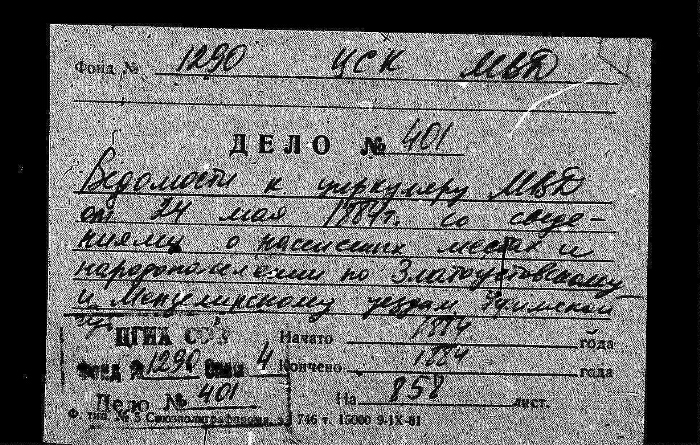 Фонд № 1290 ЦСК МВД
ДЕЛО № 401
Ведомости к циркуляру МВД
от 24 мая 1884г. со сведе-
ниями о населен. местах и
народонаселении по Златоустовскому
и Мензелинскому уездам Уфимской
губ.
ЦГИА СССР
Фонд № 1290 Опись 4
Дело № 401
Начато 1884 года
Кончено 1884 года
На 858 лист.
746 т. 15000 9-IX-81